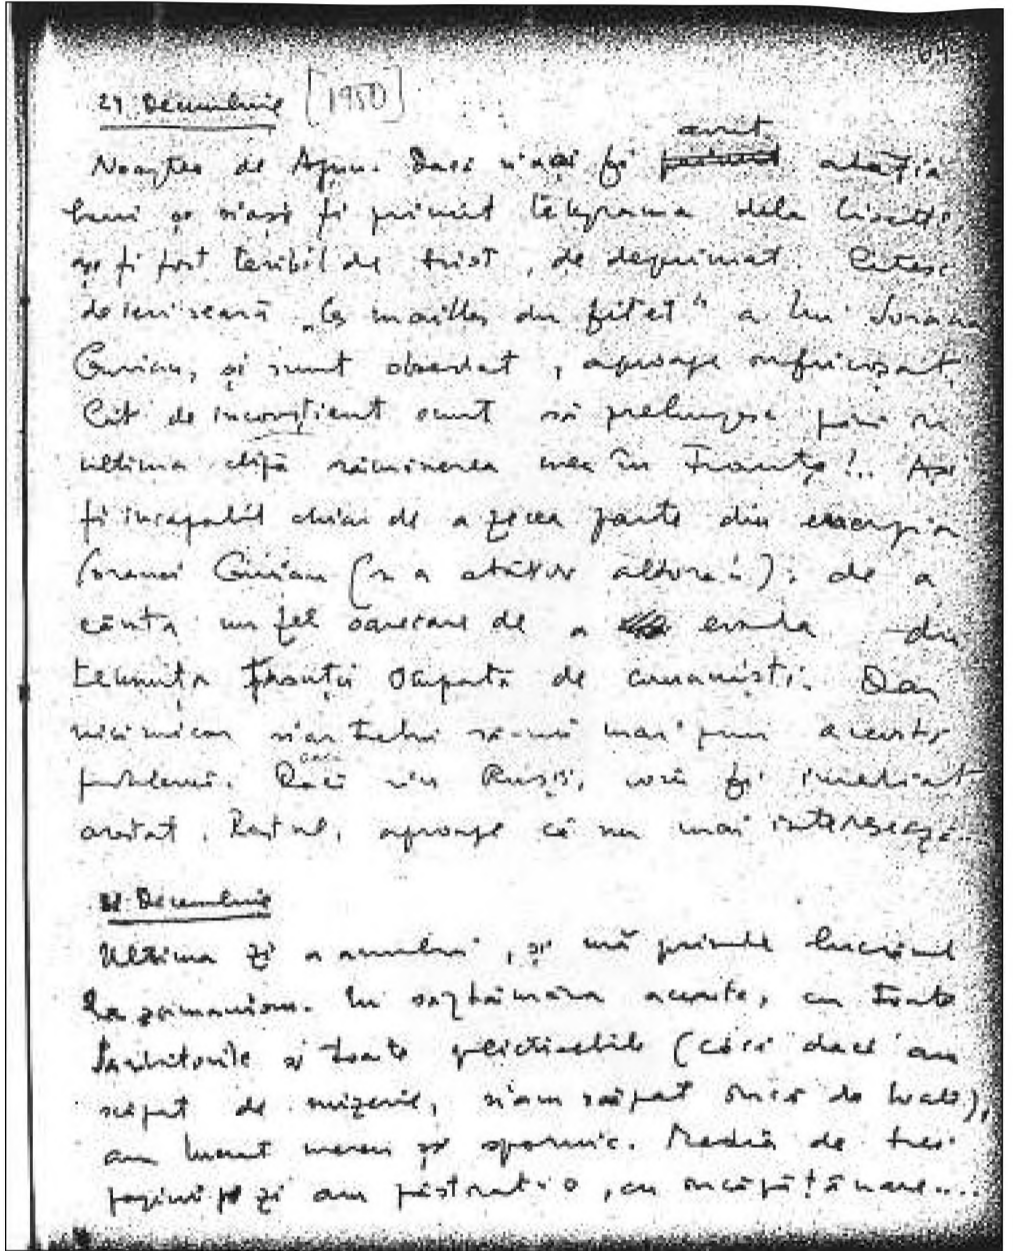 24. Decembrie [1950]
Noaptea de Ajun. Dacă n'aş fi avut atâţia
bani şi n'aşi fi primit telegrama dela
aşi fi fost teribil de trist, de deprimat. Citesc
de ieri seară „Les mailles du filet" a lui Sorana
Gurian, şi sunt obsedat, aproape înfricoşat.
Cât de inconştient sunt să prelungesc până în
ultima clipă rămânerea mea în Franţa!.. Aşi
fi incapabil chiar de a zecea parte din
Soranei Gurian (şi a atâtor altora!): de a
căuta un fel oarecare de a evada din
temniţa Franţei ocupată de comunişti. Dar
nici măcar n'ar trebui să-mi mai pun această
problemă. Dacă vin Ruşii, voiu fi imediat
arestat. Restul, aproape că nu mai interesează...
31. Decembrie
Ultima zi a anului, şi mă prinde lucrând
la şamanism. În săptămâna aceasta, cu toate
sărbătorile şi toate plictiselile (căci dacă am
scăpat de mizerie, n'am scăpat încă de boală),
am lucrat mereu şi spornic. Media de trei
pagini pe zi am păstrat-o, cu încăpăţânare...